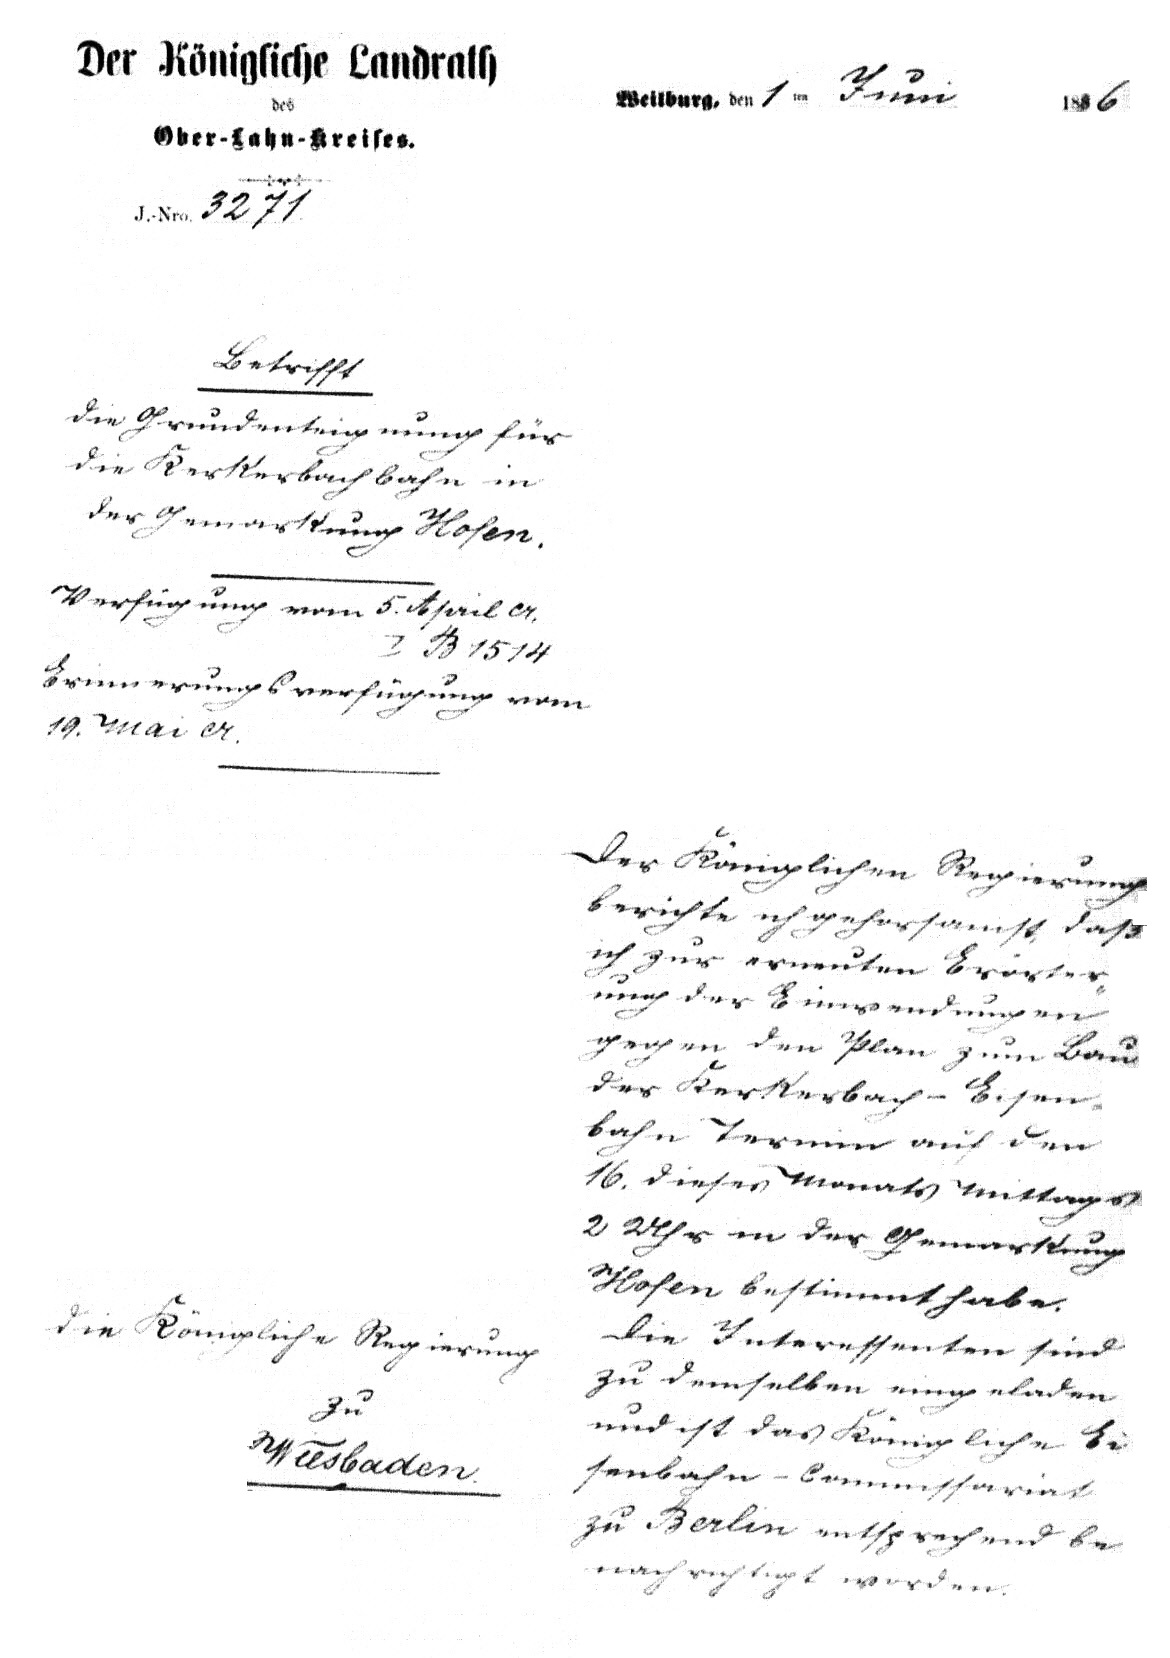 Der Königliche Landrath
des
Ober-Lahn-Kreises.
J.-Nro. 3271
Weilburg, den 1ten Juni 1886
Betrifft
die Grundenteignung für
die Kerkerbachbahn in
der Gemarkung Hofen.
Verfügung vom 5. April cr.
I B 1514
Erinnerungsverfügung vom
19. Mai cr.
Der Königlichen Regierung
berichte ich gehorsamst, daß
ich zur erneuten Erörter-
ung der Einwendungen
gegen den Plan zum Bau
der Kerkerbach-Eisen-
bahn Termin auf den
16. dieses Monats Mittags
2 Uhr in der Gemarkung
Hofen bestimmt habe.
Die Interessenten sind
zu demselben eingeladen
und ist das Königliche Ei
senbahn-Commissariat
zu Berlin entsprechend be
nachrichtigt worden.
die Königliche Regierung
zu
Wiesbaden.